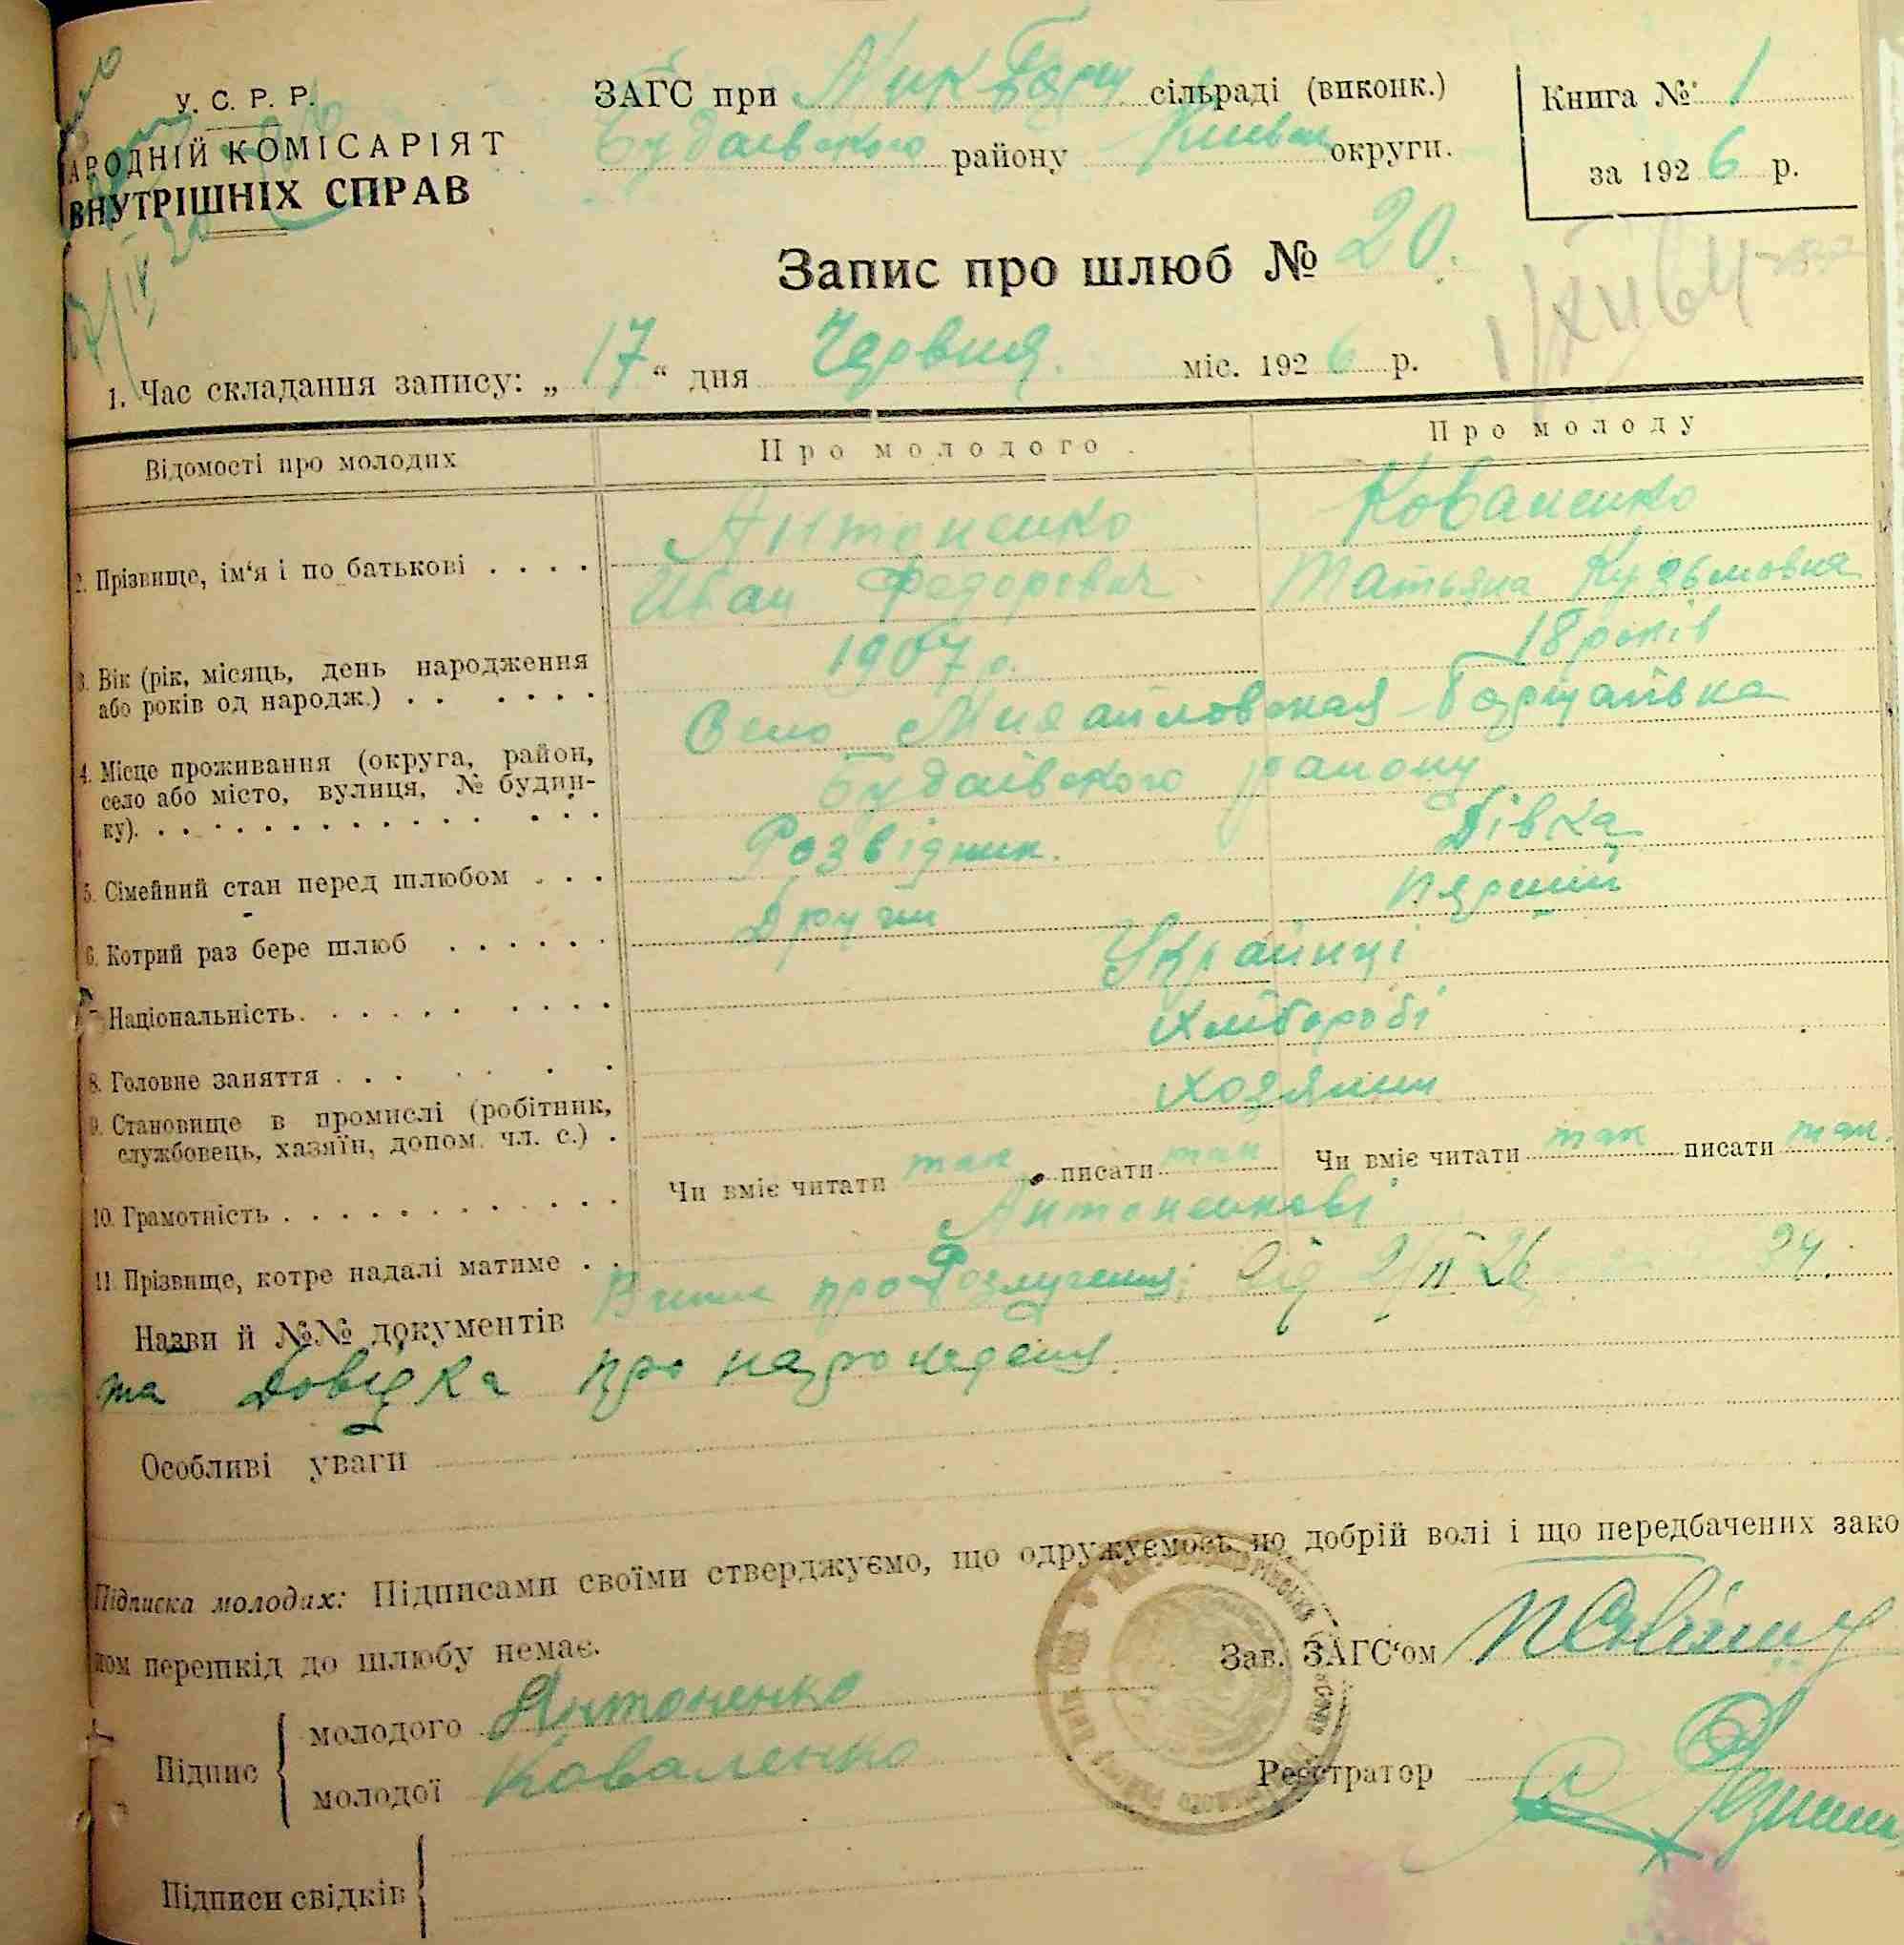 У. С. Р. Р.
АРОДНІЙ КОМІСАРІЯТ
ВНУТРІШНІХ СПРАВ
ЗАГС при Мих Борщ сільраді (виконк.)
Будаївского району Київск округи.
Книга № 1
за 1926 р.
Запис про шлюб № 20.
1. Час складання запису: „17“ дня Червня міс. 1926 р.
Відомості про молодих
Про молодого
Про молоду
2. Прізвище, ім‘я і по батькові . . . .
Антоненко
Иван Федорович
Коваленко
Татьяна Кузьмовна
3. Вік (рік, місяць, день народження
або років од народж.) . . . . . .
1907 р.
18 років
4. Місце проживання (округа, район,
село або місто, вулиця, № будин-
ку).
Село Михайловская-Борщагівка
Будаївского району
5. Сімейний стан перед шлюбом . . .
Розвідник.
Дівка
6. Котрий раз бере шлюб . . . . . .
Други
Перший
Національність.
Украйнці
8. Головне заняття . . .
Хліборобі
9. Становище в промислі (робітник,
службовець, хазяїн, допом. чл. с.) .
Хозяини
10. Грамотність
Чи вміє читати так писати так Чи вміє читати так писати так.
11. Прізвище, котре надалі матиме . .
Антоненкові
Назви й №№ документів про Розлучення; Від 2/II 26 94.
та Довідка про народження.
Особливі уваги
Підписка молодих: Підписами своїми стверджуємо, що одружуємось по добрій волі і що передбачених зако
ном перешкід до шлюбу немає.
Зав. ЗАГС‘ом
Підпис
молодого Антоненко
молодої Коваленко
Реєстратор
Підписи свідків